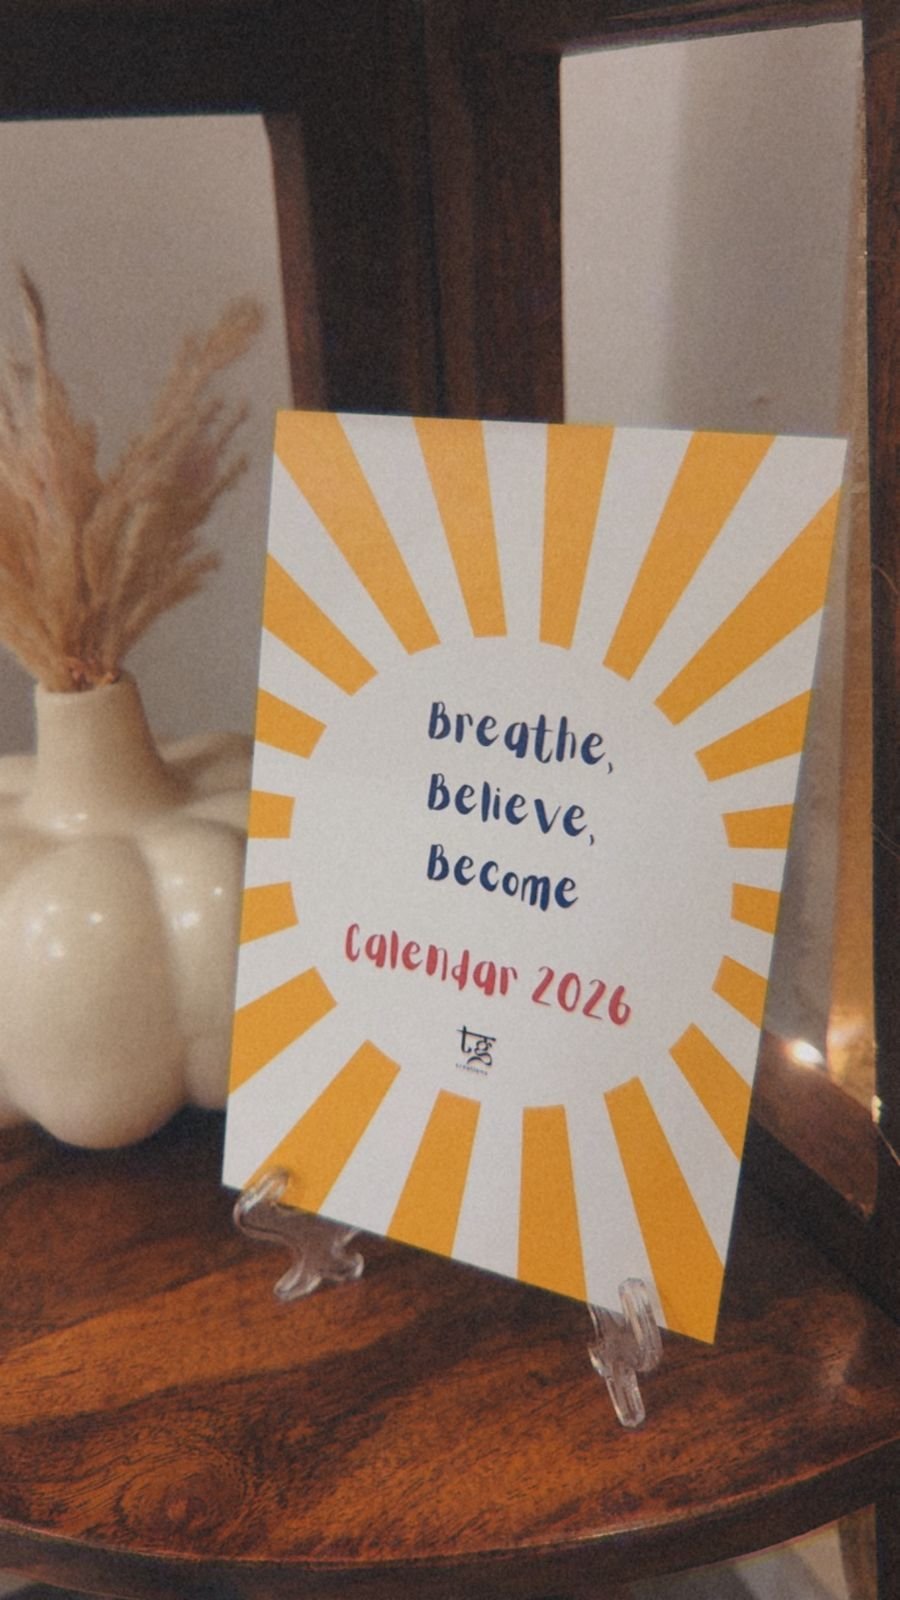 Breathe,
Believe,
Become
Calendar 2026
tg
creations